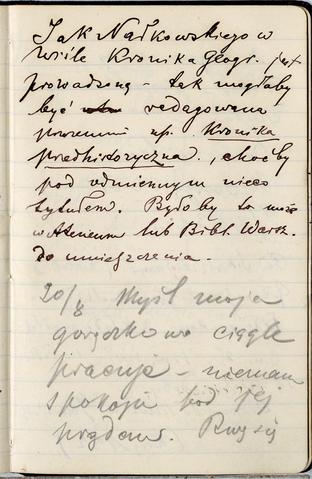 Jak Nałkowskiego w
Wiśle Kronika Geogr. jest
prowadzoną – tak mogłaby
być redagowana
np. Kronika
predhistoryczna, choćby
pod odmiennym nieco
tytułem. Byłoby to może
w Ateneum lub Bibl. Warsz.
do umieszczenia.
20/8 Myśl moja
gorączkowo ciągle
pracuje – niemam
spokoju pod jej
prądem. Rwę się